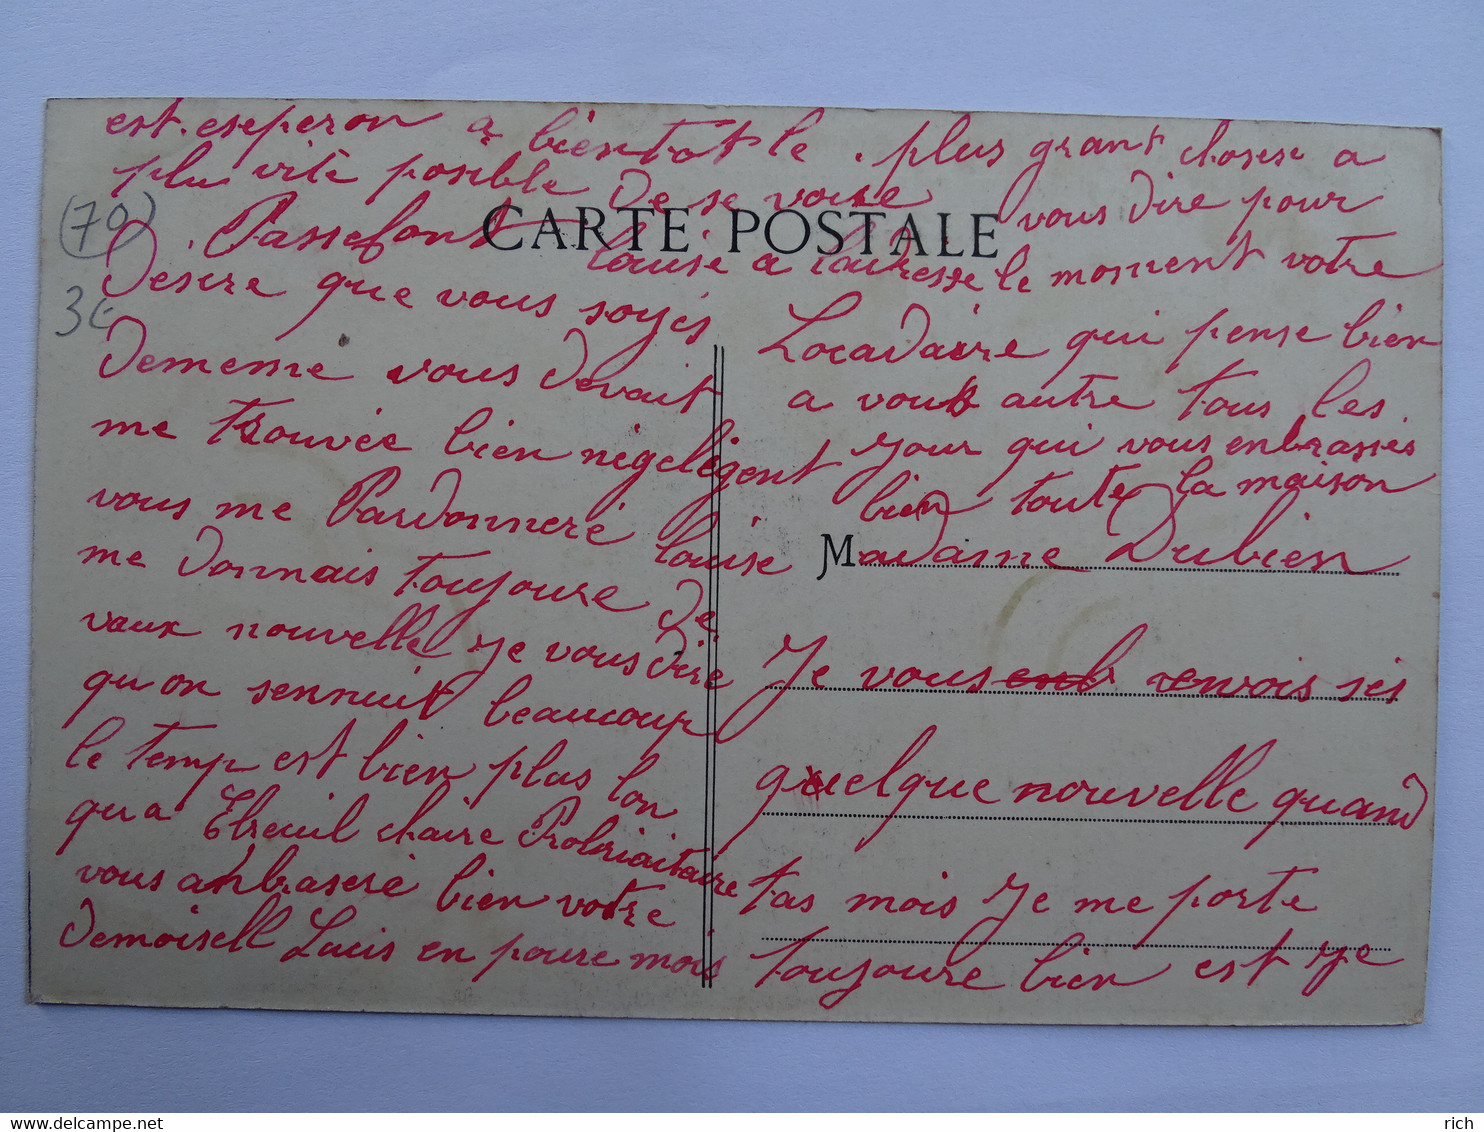 Madame Dubien
Je vous enb renvois ses
quelque nouvelle quand
tas mois Je me porte
toujoure bien est Je
Desire que vous soyés
Dememe vous Devait
me trouvée bien négeligent
vous me Pardonneré Louise
me Donnais toujoure De
vaux nouvelle Je vous Dire
qu on sennuit beaucoup
le temp est bien plus lon
qu a Ebreuil chaire Probriaitaire
vous anbraseré bien votre
Demoisell Lucis en poure mois
est esperon a bientot le plus
plus vite posible De se voire
D. Passefont
Louise a l'adresse
plus grant choses a
vous Dire pour
le moment votre
Locadaire qui pense bien
a vous autre tous les
Jour qui vous enbrassés
bien toute la maison
CARTE POSTALE
(70)
3€
rich